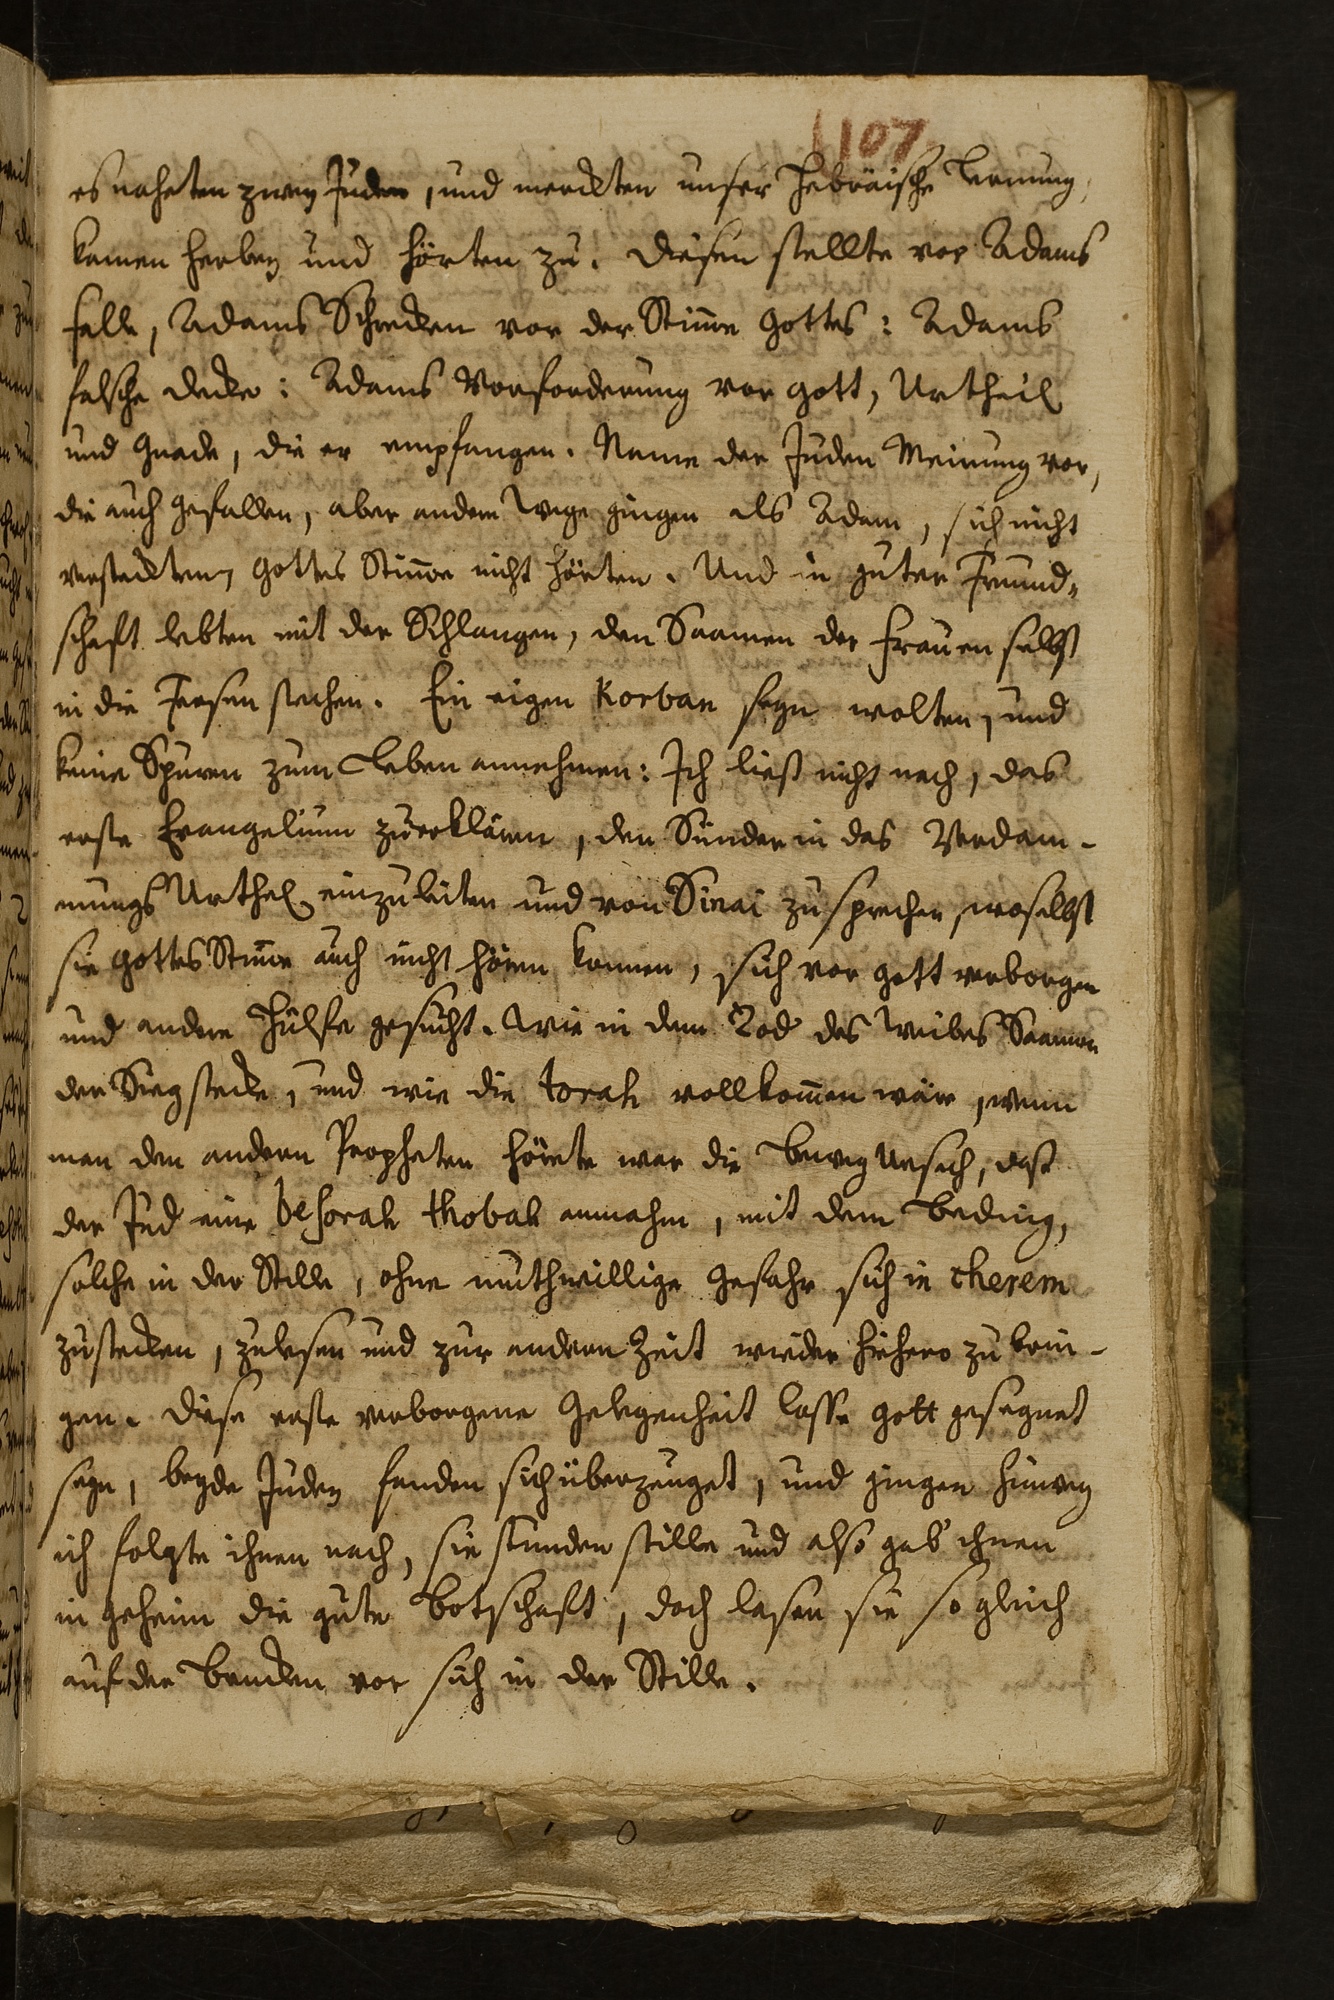 107
es naheten zwey Juden, und merckten unser Hebräische Lernung,
kamen herbey und hörten zu. diesen stellte vor Adams
Falle, Adams Schrecken vor der Stimme Gottes: Adams
falsche decke: Adams Vorforderung vor gott, Urtheil
und Gnade, die er empfangen. Name der Juden Meinung vor,
die auch gefallen, aber andern Wege gingen als Adam, sich nicht
versteckten, Gottes Stimme nicht hörten. Und in guter Freund„
schaft lebten mit der Schlangen, den Saamen der Frauen selbst
in die Fersen stechen. Ein eigen Korban seyn wolten, und
keine Spuren zum Leben annehmen: Ich ließ nicht nach, das
erste Evangelium zuerklären, den Sünder in das Verdam-
mungs Urthel einzuleiten und von Sinai zu sprechen, woselbst
sie Gottes Stimme auch nicht hören konnen, sich vor gott verborgen
und andere Hülfe gesucht. Wie in dem Tod des Weibes Saamen
der Sieg stecke, und wie die torah vollkommen wäre, wenn
man den andern Propheten hörete war die Beweg Ursach, daß
der Jud eine besorah thobah annahm, mit dem Beding,
solche in der Stille, ohne muthwillige Gefahr sich in cherem
zustecken, zulesen und zur andern Zeit wieder hiehero zu brin-
gen. Diese erste verborgene Gelegenheit lasse gott gesegnet
seyn, beyde Juden fanden sich überzeuget, und gingen hinweg
ich folgte ihnen nach, sie stunden stille und also gab ihnen
in geheim die gute Botschaft, doch lasen sie so gleich
auf der Bencken vor sich in der Stille.